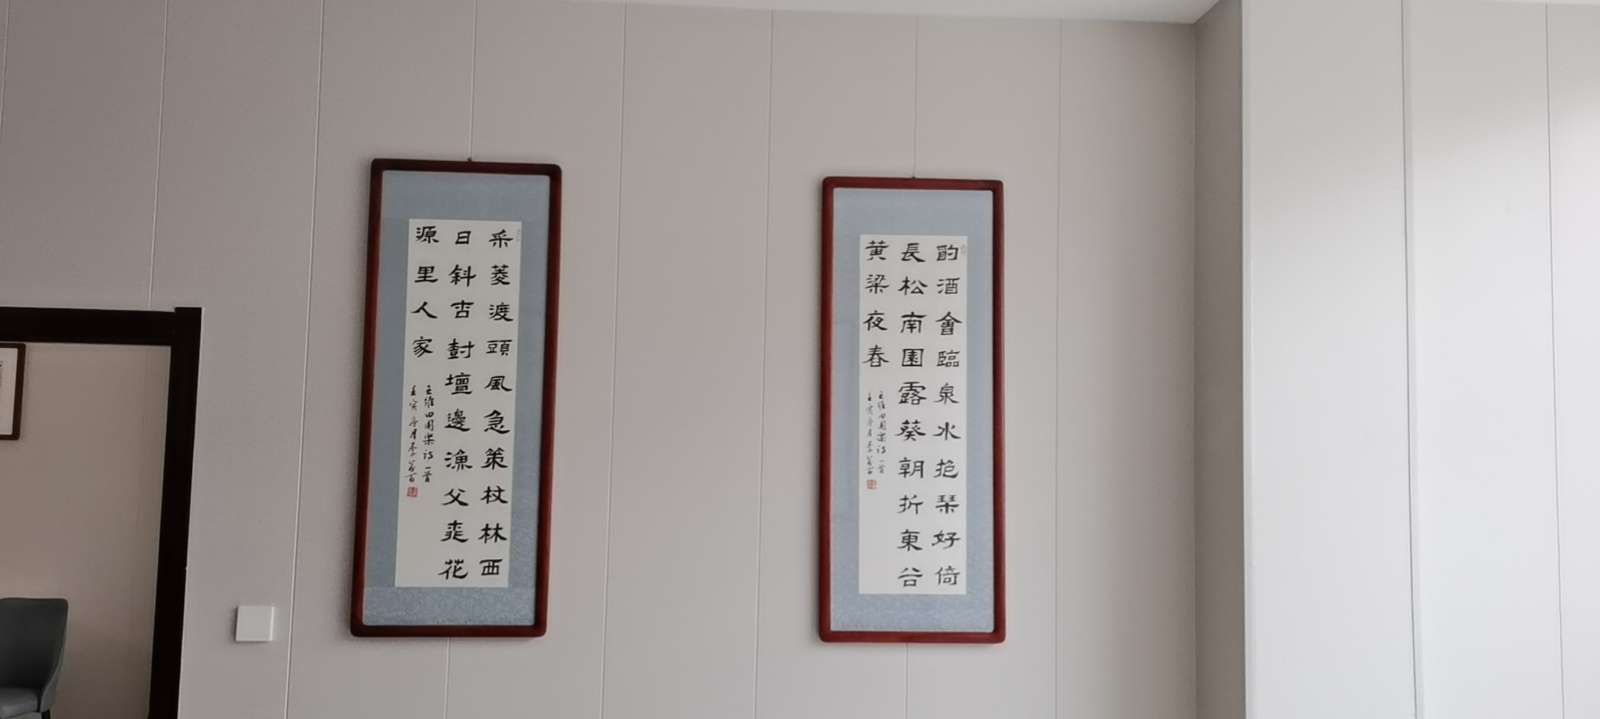 酌酒會臨泉水抱琴好倚
長松南園露葵朝折東谷
黄梁夜舂
王維田園樂詩一首
壬寅
采菱渡頭風急策杖林西
日斜杏尌壇邊漁父桃花
源里人家
王維田園樂詩一首
壬寅